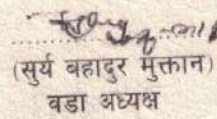 (सुर्य बहादुर मुक्तान)
वडा अध्यक्ष